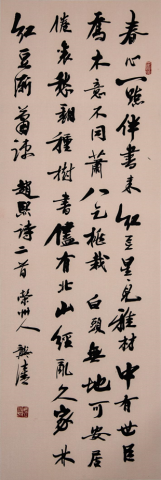 春心一點伴書來紅豆星〻見雅材中有世臣
喬木意不同蕭八乞榿栽白頭無地可安居
種樹書儘有北山經亂久家林
紅豆漸蕭疎 趙熙詩二首 榮州人